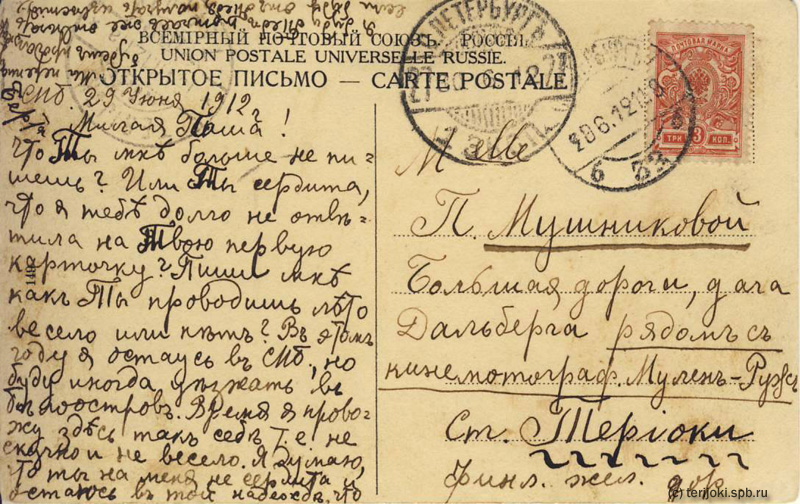 ВСЕМІРНЫЙ ПОЧТОВЫЙ СОЮЗЪ. РОССІЯ.
UNION POSTALE UNIVERSELLE RUSSIE.
ОТКРЫТОЕ ПИСЬМО — CARTE POSTALE
СПБ 29 Июня 1912 г
Милая Паша!
Что Ты мнѣ больше не пи-
шешь? Или Ты сердита,
что я тебѣ долго не отвѣ-
тила на Твою первую
карточку? Пиши мнѣ
какъ Ты проводишь лѣто
весело или нѣтъ? Въ этомъ
году я остаюсь въ СПБ, но
буду иногда уѣзжать въ
Бѣлоостровъ. Время я прово-
жу здѣсь такъ себѣ т.е не
скучно и не весело. Я думаю,
что ты на меня не сердита и
остаюсь въ той надеждѣ, что
M elle
П. Мушниковой
Большая дорога, дача
Дальберга рядомъ съ
кинематограф. Муленъ-Ружъ
Ст. Теріоки
Финл. жел. дор.
ПЕТЕРБУРГЪ
28.6.12
ПОЧТОВАЯ МАРКА
ТРИ 3 КОП.
(c) terijoki.spb.ru